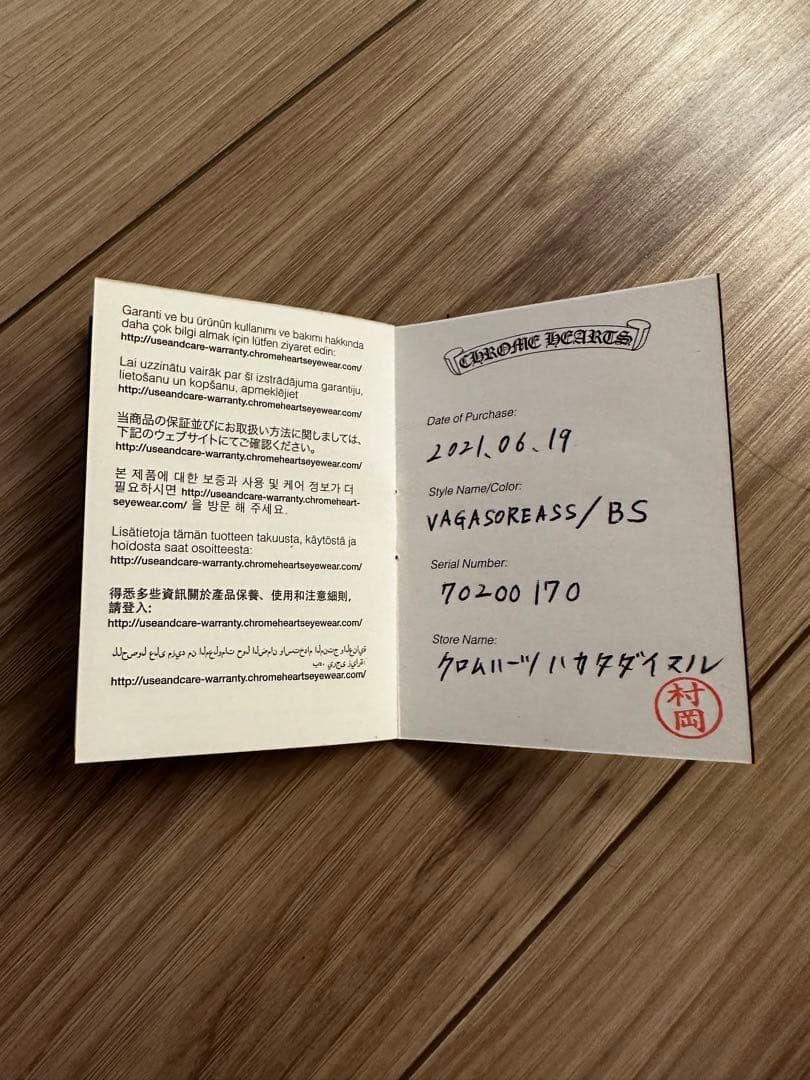 Garanti ve bu ürünün kullanımı ve bakımı hakkında
daha çok bilgi almak için lütfen ziyaret edin:
http://useandcare-warranty.chromeheartseyewear.com/
Lai uzzinātu vairāk par šī izstrādājuma garantiju,
lietošanu un kopšanu, apmeklējiet
http://useandcare-warranty.chromeheartseyewear.com/
当商品の保証並びにお取扱い方法に関しましては、
下記のウェブサイトにてご確認ください。
http://useandcare-warranty.chromeheartseyewear.com/
본 제품에 대한 보증과 사용 및 케어 정보가 더
필요하시면 http://useandcare-warranty.chromeheart-
seyewear.com/ 을 방문 해 주세요.
Lisätietoja tämän tuotteen takuusta, käytöstä ja
hoidosta saat osoitteesta:
http://useandcare-warranty.chromeheartseyewear.com/
得悉多些資訊關於產品保養、使用和注意細則,
請登入:
http://useandcare-warranty.chromeheartseyewear.com/
للحصول على مزيد من المعلومات حول الضمان واستخدام المنتج والعناية
به، يرجى زيارة:
http://useandcare-warranty.chromeheartseyewear.com/
CHROME HEARTS
Date of Purchase:
2021.06.19
Style Name/Color:
VAGASOREASS/BS
Serial Number:
70200170
Store Name:
クロムハーツ ハカタダイマル
村岡